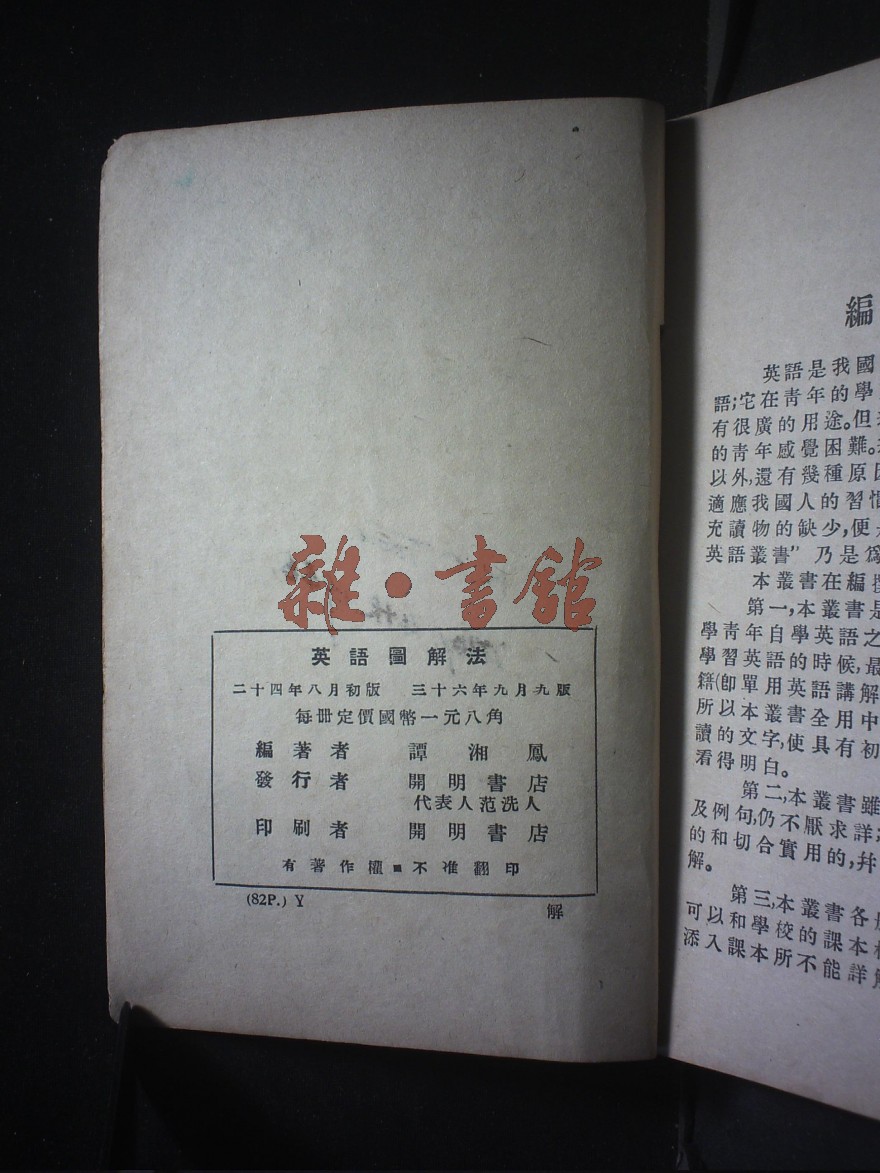 雜·書館
英語圖解法
二十四年八月初版 三十六年九月九版
每册定價國幣一元八角
編著者 譚湘鳳
發行者 開明書店
代表人范洗人
印刷者 開明書店
有著作權■不准翻印
(82P.) Y 解
編
英語是我國
語;它在靑年的學
有很廣的用途。但
的靑年感覺困難。
以外,還有幾種原因
適應我國人的習慣
充讀物的缺少,便
英語叢書”乃是爲
本叢書在編
第一,本叢書是
學靑年自學英語之
學習英語的時候,最
籍(卽單用英語講解
所以本叢書全用中
讀的文字,使具有初
看得明白。
第二,本叢書雖
及例句,仍不厭求詳;
的和切合實用的,幷
解。
第三,本叢書各
可以和學校的課本
添入課本所不能詳